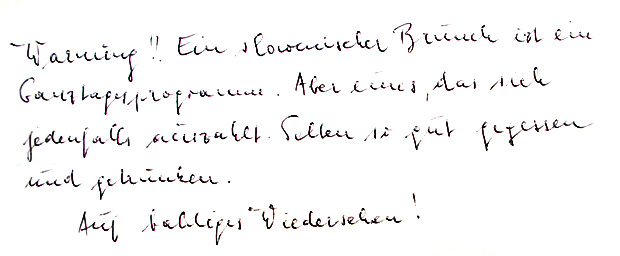 Warnung!! Ein slowenischer Brunch ist ein
Ganztagsprogramm. Aber eines, das sich
jedenfalls auszahlt. Selten so gut gegessen
und getrunken.
Auf baldiges Wiedersehen!